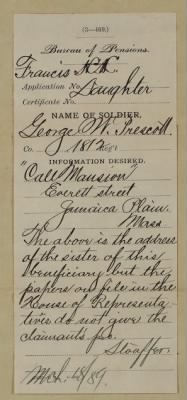 (3—469.)
Bureau of Pensions.
Francis
Application No. Daughter
Certificate No.
NAME OF SOLDIER.
George W. Prescott.
Co. 1812 Reg't
INFORMATION DESIRED.
"Call Mansion"
Everett street
Jamaica Plain.
Mass
The above is the address
of the sister of this
beneficiary but the
papers on file in the
House of Representa-
tives do not give the
claimants p.o.
Stauffer.
/89.